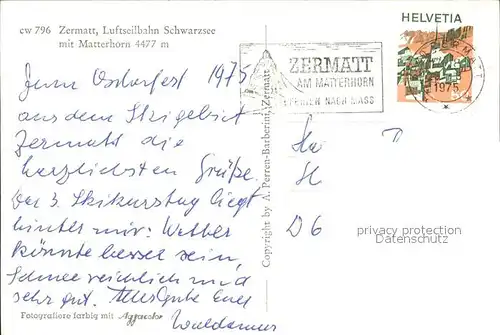 cw 796 Zermatt, Luftseilbahn Schwarzsee
mit Matterhorn 4477 m
Zum Osterfest 1975
aus dem Skigebiet
Zermatt die
herzlichsten Grüße.
Der 3. Skikurstag liegt
hinter mir. Wetter
könnte besser sein,
Schnee reichlich und
sehr gut. Alles Gute Euch
Waldemar
Fotografiere farbig mit Agfacolor
Copyright by A. Perren-Barberini, Zermatt
ZERMATT
AM MATTERHORN
FERIEN NACH MASS
HELVETIA
ZERMATT
1975
D 6
privacy protection
Datenschutz